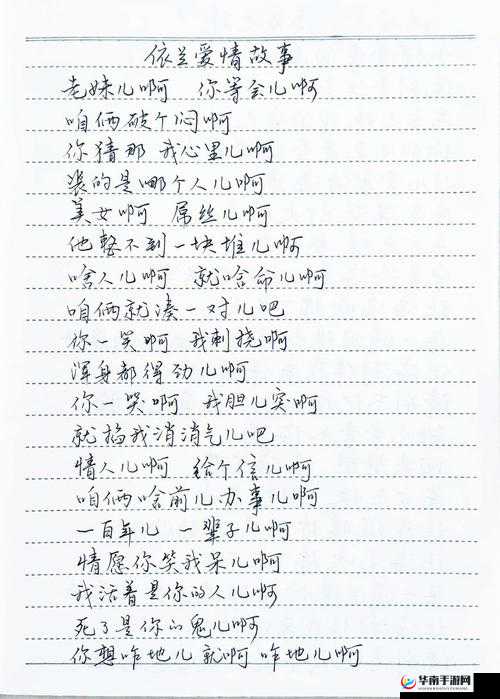 依兰爱情故事
老妹儿啊 你等会儿啊
咱俩破个闷啊
你猜那 我心里儿啊
装的是哪个人儿啊
美女啊 屌丝儿啊
他整不到一块堆儿啊
啥人儿啊 就啥命儿啊
咱俩就凑一对儿吧
你一笑啊 我刺挠啊
浑身都得劲儿啊
你一哭啊 我胆儿突啊
就掐我消消气儿吧
情人儿啊 给个信儿啊
咱俩啥前儿办事儿啊
一百年儿 一辈子儿啊
情愿你笑我呆儿啊
我活着是你的人儿啊
死了是你的鬼儿啊
你想咋地儿就啊 咋地儿啊
华南手游网